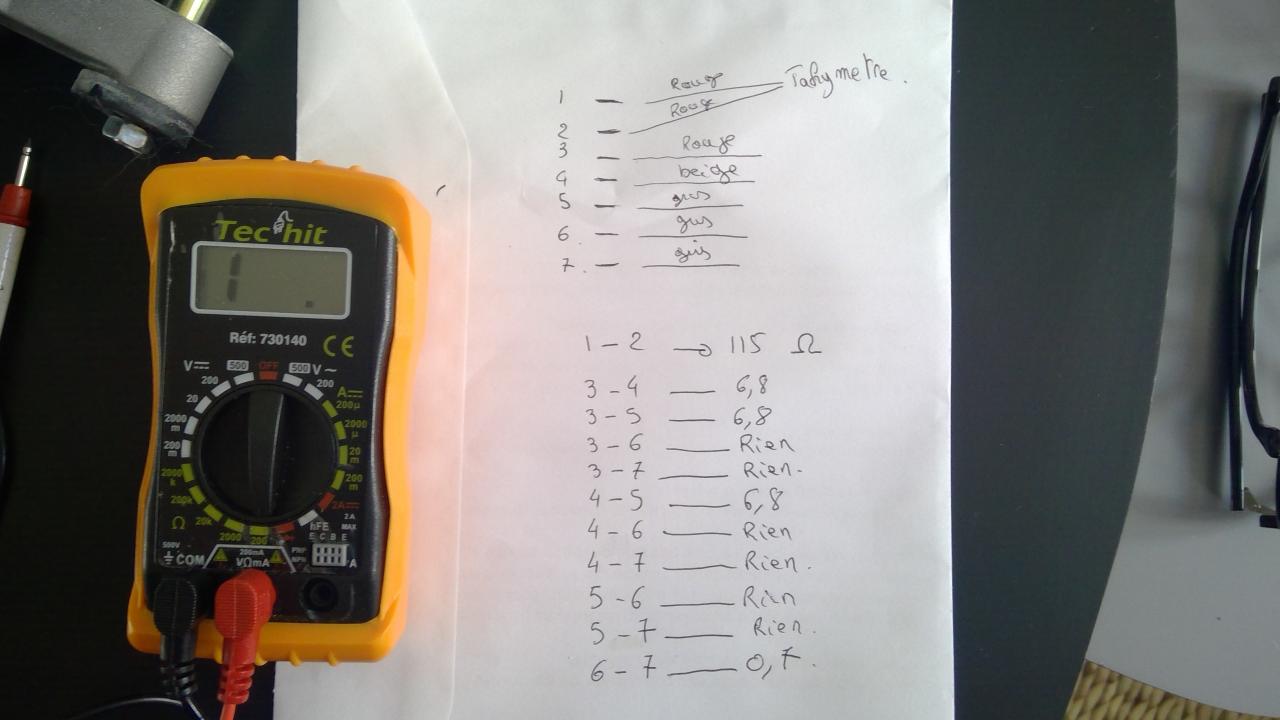 1 — Rouge
2 — Rouge
Tachymetre .
3 — Rouge
4 — beige
5 — gris
6. — gris
7. — gris
1 – 2 → 115 Ω
3 - 4 — 6,8
3 - 5 — 6,8
3 - 6 — Rien
3 - 7 — Rien.
4 - 5 — 6,8
4 - 6 — Rien
4 - 7 — Rien.
5 - 6 — Rien
5 - 7 — Rien.
6 - 7 — 0,7.
Tec hit
1 .
Réf: 730140 CE
V 500 OFF 500 V~
200 200
A
20 200µ
2000 m 2000 µ
200 m 20 m
2000 k 200 m
200k 2A
Ω 20k 2000 200 hFE 2A MAX
E C B E
500V 200mA PNP NPN
COM VΩmA A